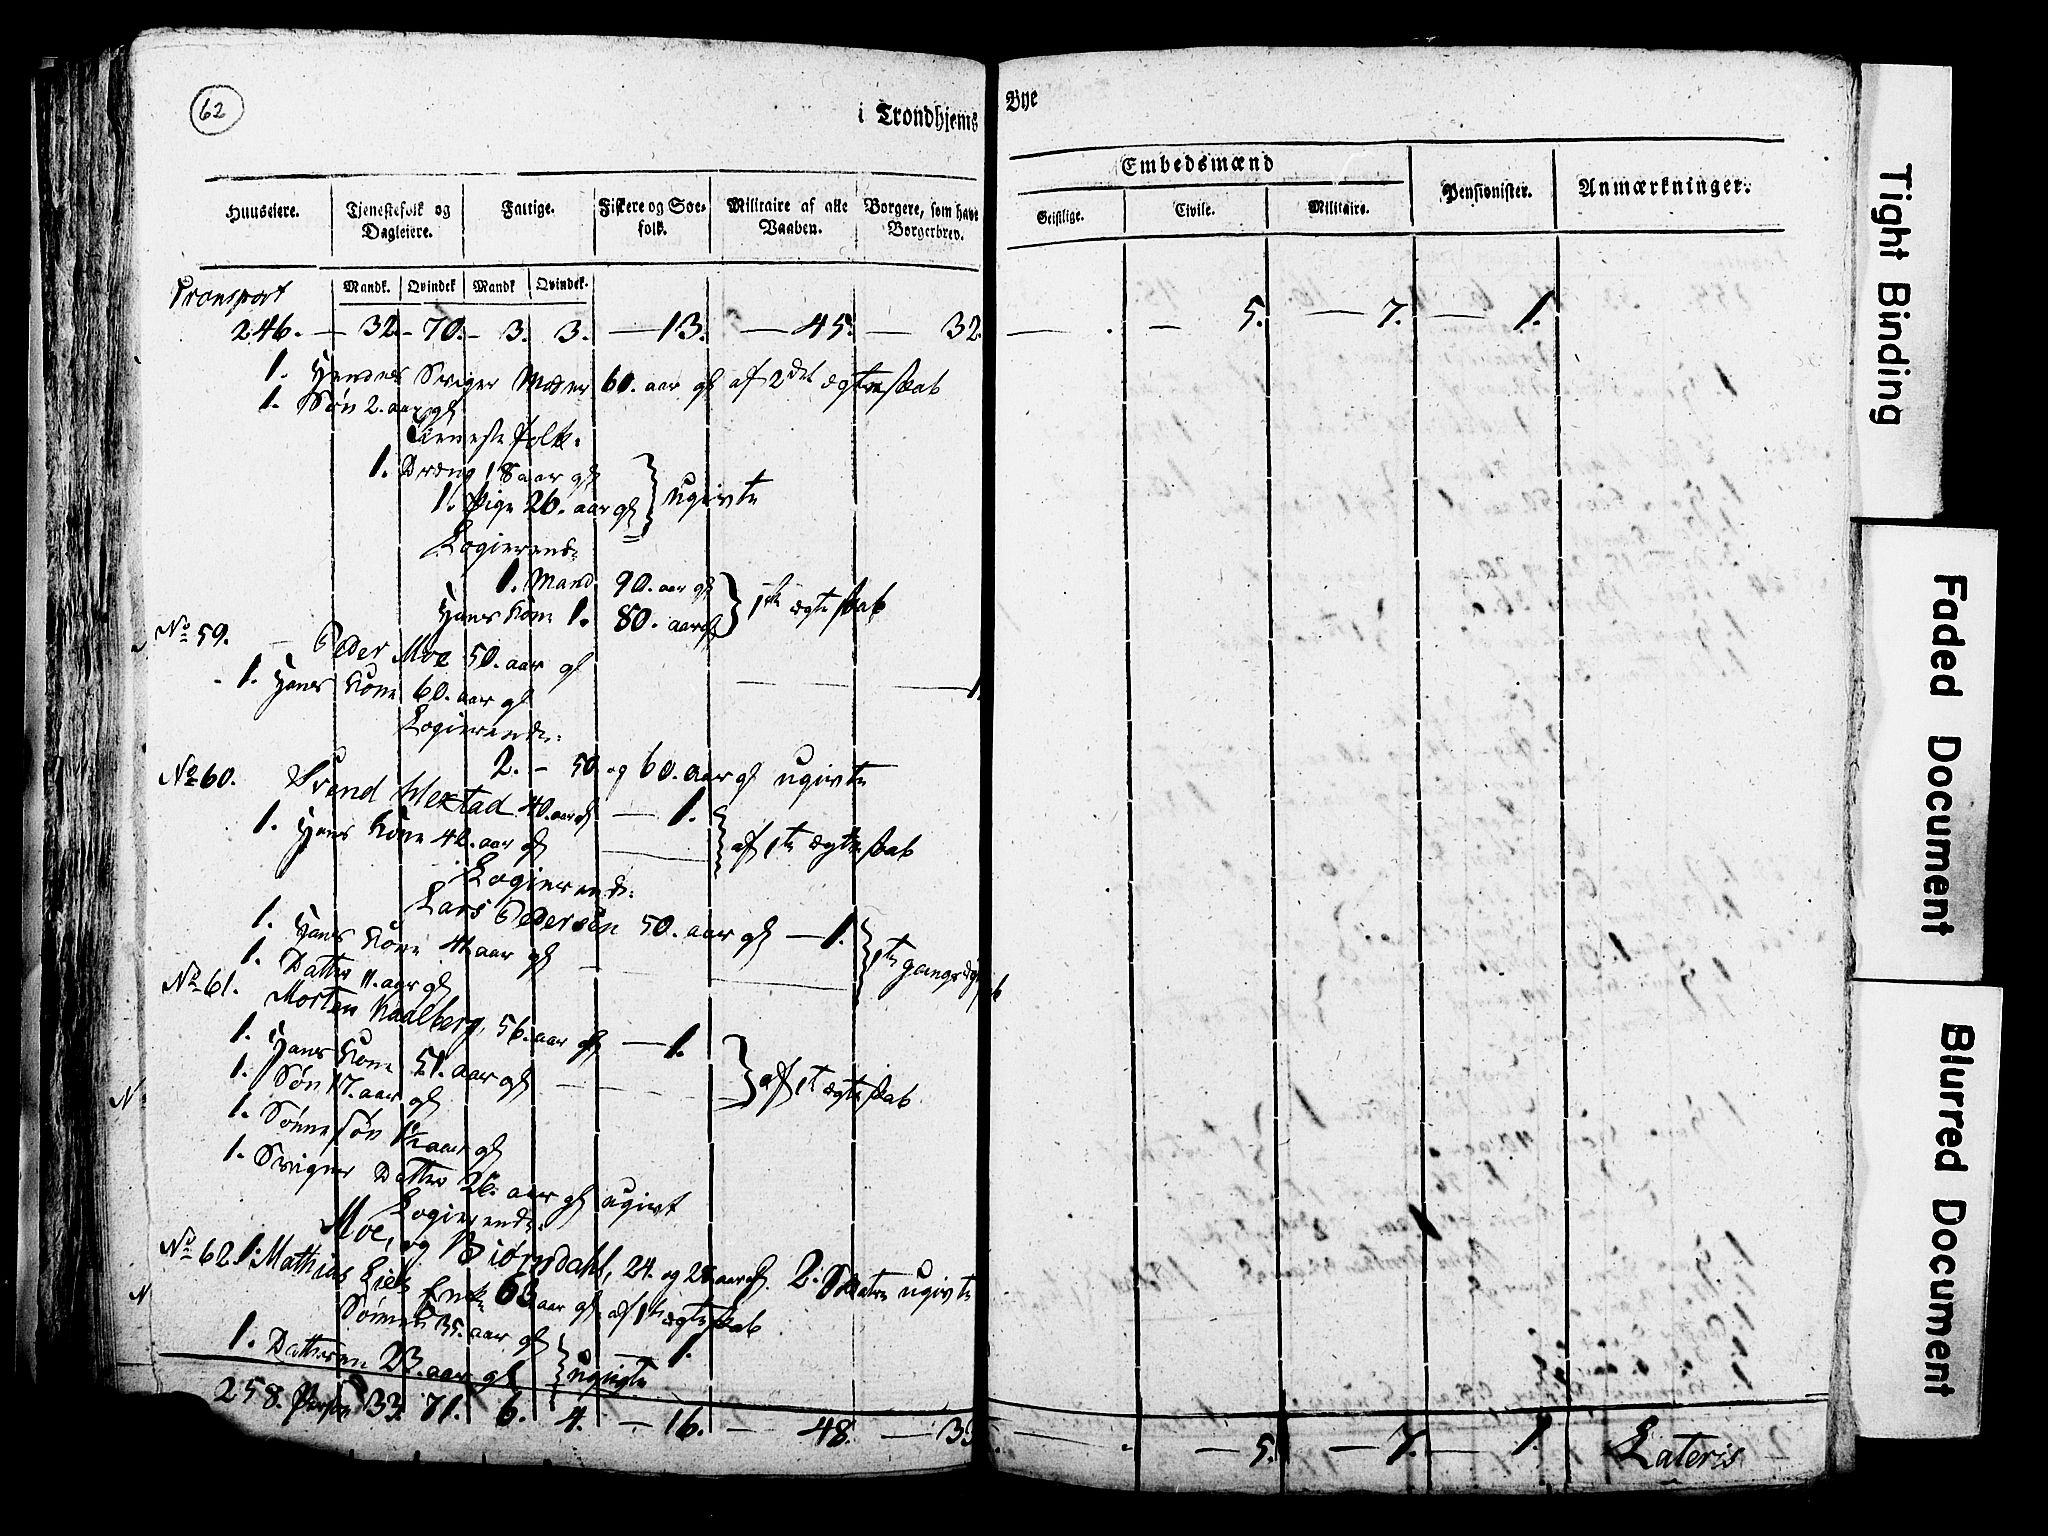 62
i Trondhjems Bye
Huuseiere. Tjenestefolk og Dagleiere. Fattige. Fiskere og Søefolk. Militaire af alle Vaaben. Borgere, som have Borgerbrev. Embedsmænd Geistlige. Civile. Militaire. Pensionister. Anmærkninger.
Mandk. Qvindek Mandk Qvindek.
Transport
246. — 32 - 70. - 3. 3. — 13. — 45. — 32. — . — 5. — 7. — 1.
1. Svigger Moder 60. aar gl af 2det ægteskab
1. Søn 2. aar gl
Tieneste folk.
1. Dreng 18 aar gl
1. Pige 26. aar gl } ugivte
Logierende
1. Mand. 90. aar gl
Hans Kone 1. 80. aar gl } 1ste ægteskab
No 59. — Peder Moe 50. aar gl
1. Hans Kone 60. aar gl — — 1
Logierende.
2. - 50 og 60. aar gl ugivte
No 60. Svend 40. aar gl — 1.
1. Hans Kone 46. aar gl } af 1te ægteskab
Logierende.
Lars Pedersen 50. aar gl — 1.
1. Hans Kone aar gl
1. Datter 11. aar gl } 1te gangs
No 61. Morten Kaalberg, 56. aar gl — 1.
1. Hans Kone 51. aar gl
1. Søn 17. aar gl } af 1te ægteskab
1. Sønne søn 1½ aar gl
1. Svigger Datter 26. aar gl ugivt
Logierende.
Moe, og Biørnsdahl, 24. og 28 aar gl. 2. ugivte
No 62. 1. Mathias Enke 63 aar gl af 1te ægteskab
Sønnen 35. aar gl — 1.
1. Datteren 23. aar gl } ugivte
258. Person 33. 71. 6. 4. — 16. — 48. — 35 — . — 5. — 7. — 1. Lateris
Tight Binding
Faded Document
Blurred Document